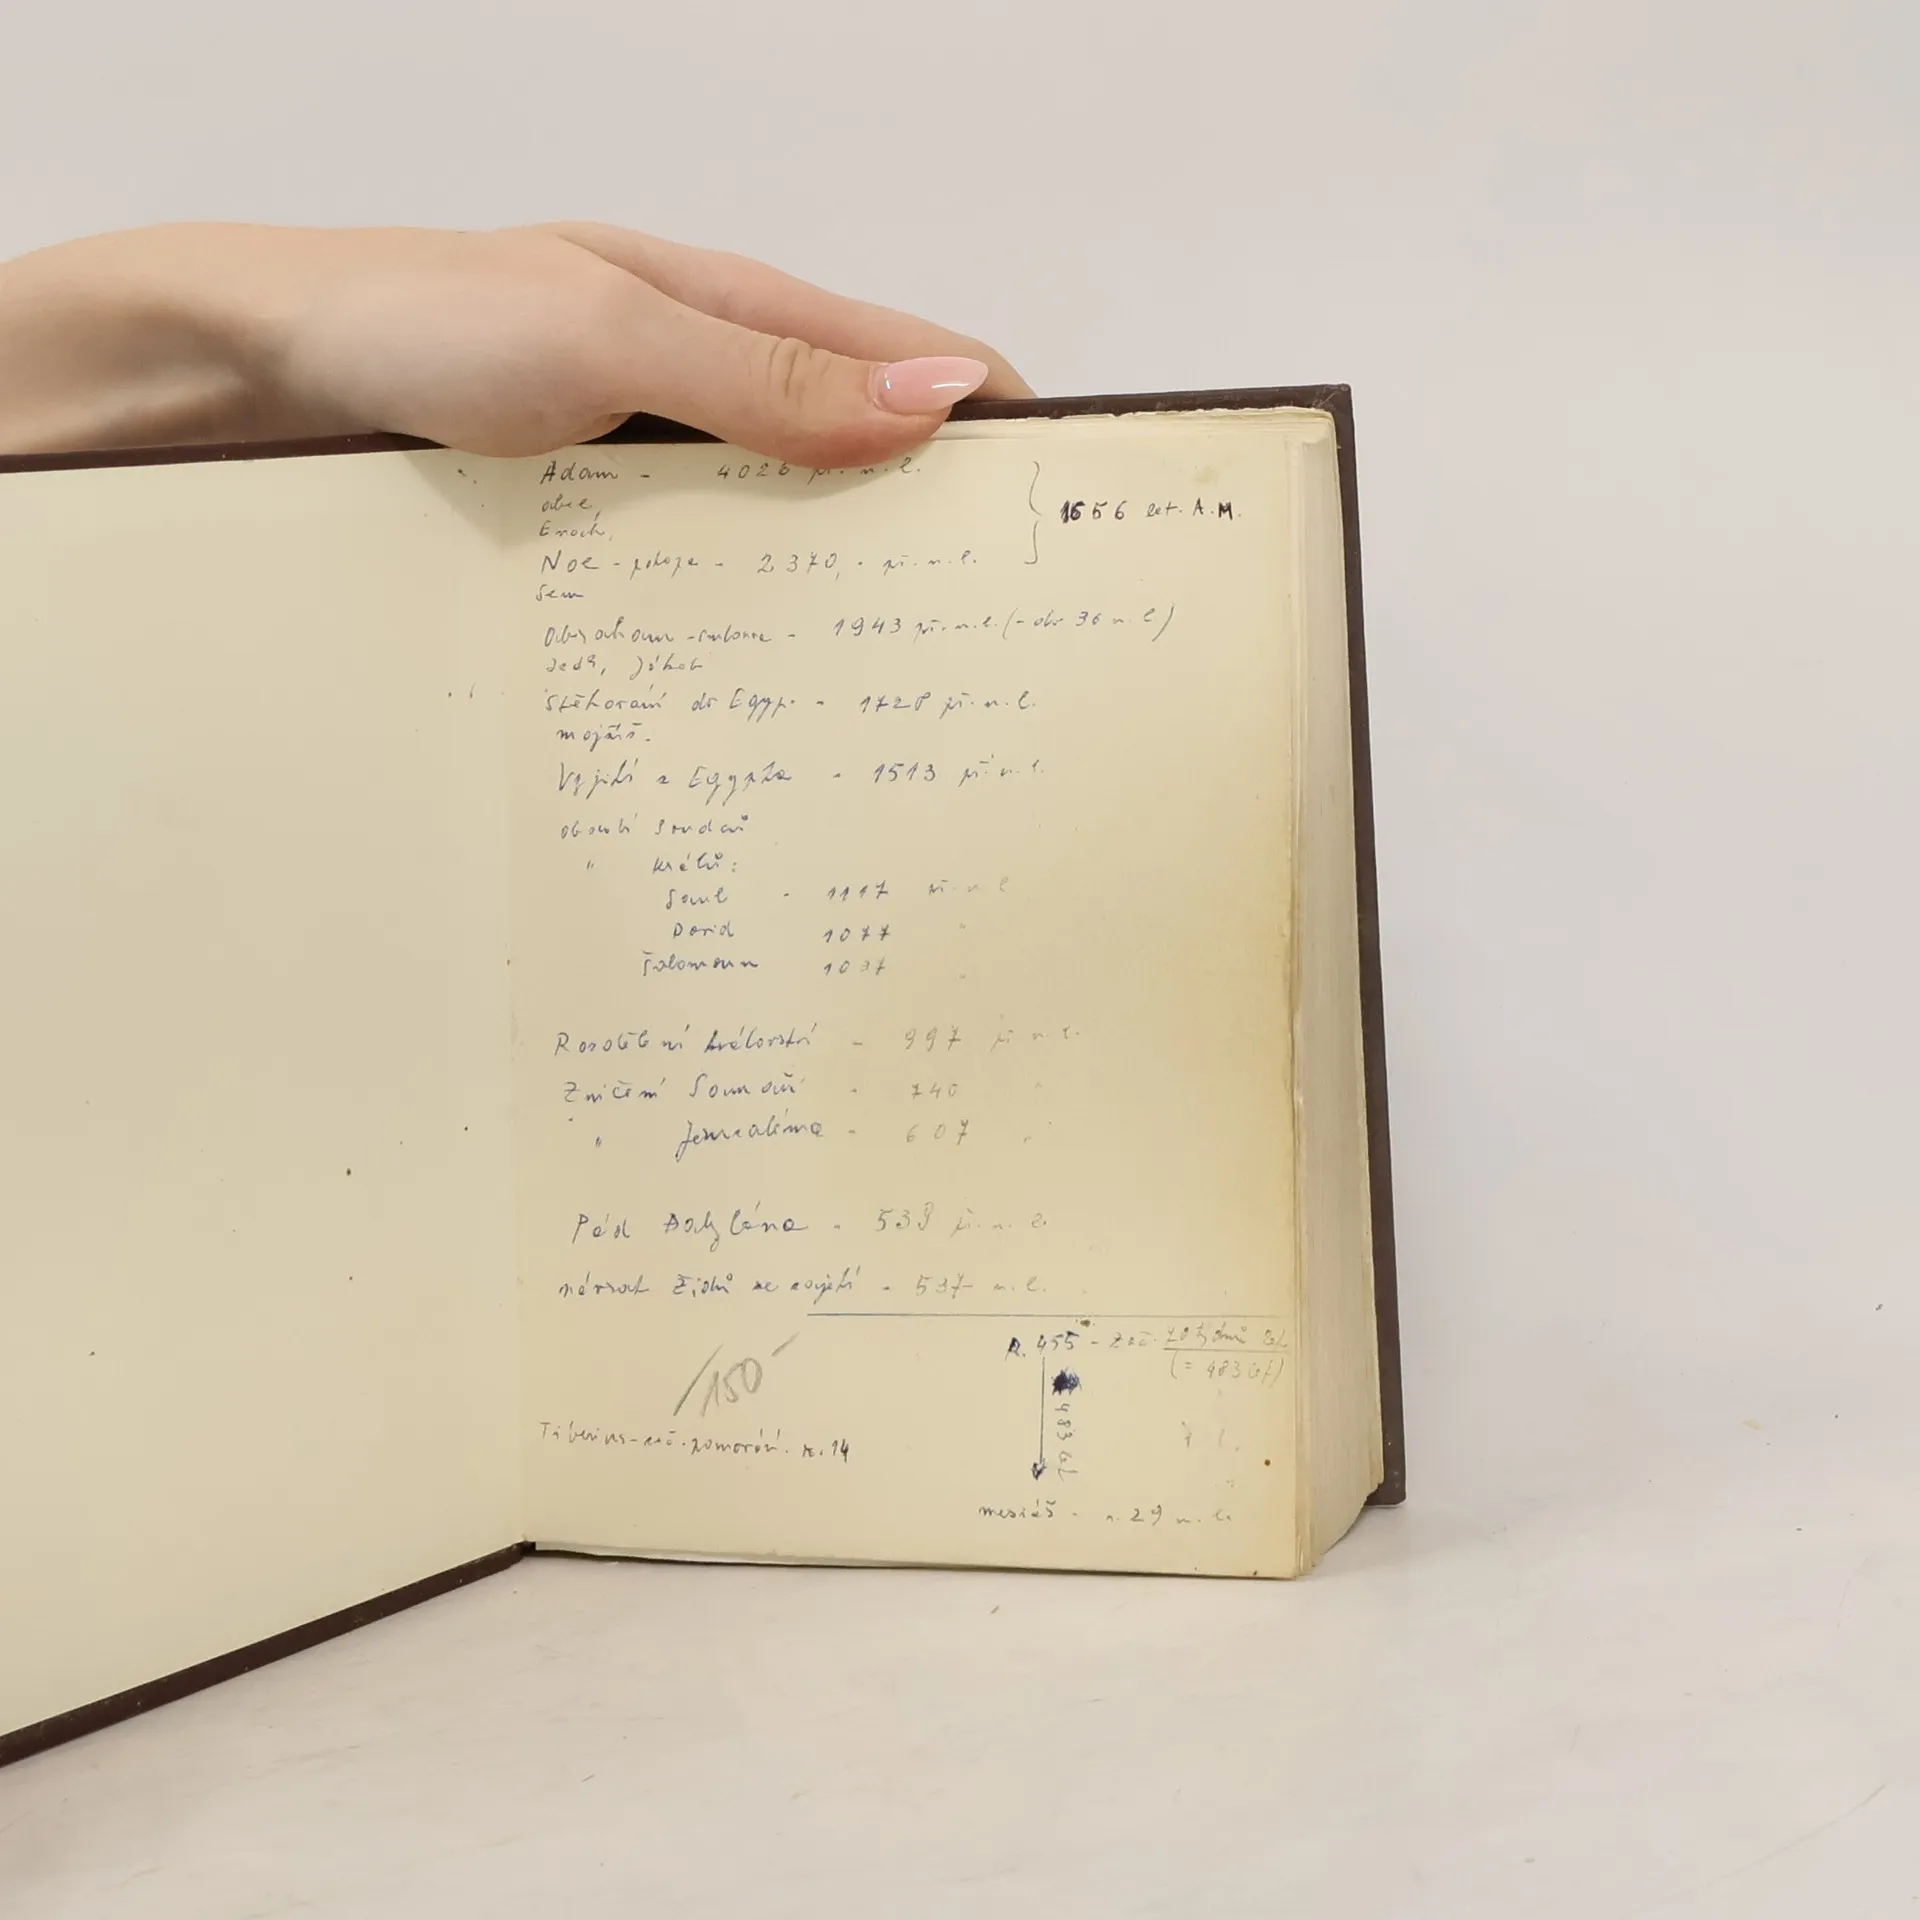 Adam - 4026 př. n. l.
1656 let. A.M.
abel,
Enoch,
Noe - potopa - 2370, - př. n. l.
Sem
Abraham - smlouva - 1943 př. n. l. (- do 36 n. l)
Jákob
Stěhování do Egyp. - 1728 př. n. l.
mojžíš.
Vyjití z Egypta - 1513 př. n. l.
období soudců
" králů:
Saul - 1117 př. n. l
David 1077 "
Šalomoun 1037 "
Rozdělení království - 997 př n. l.
Zničení Samaří - 740 "
" Jeruzaléma - 607 "
Pád Babylóna - 539 př. n. l.
návrat Židů ze zajetí - 537 n. l.
R. 455 - Zač. 70 týdnů let
(= 483 let)
/150-
483 let
Tiberius - zač. panování. r. 14
mesiáš - r. 29 n. l.